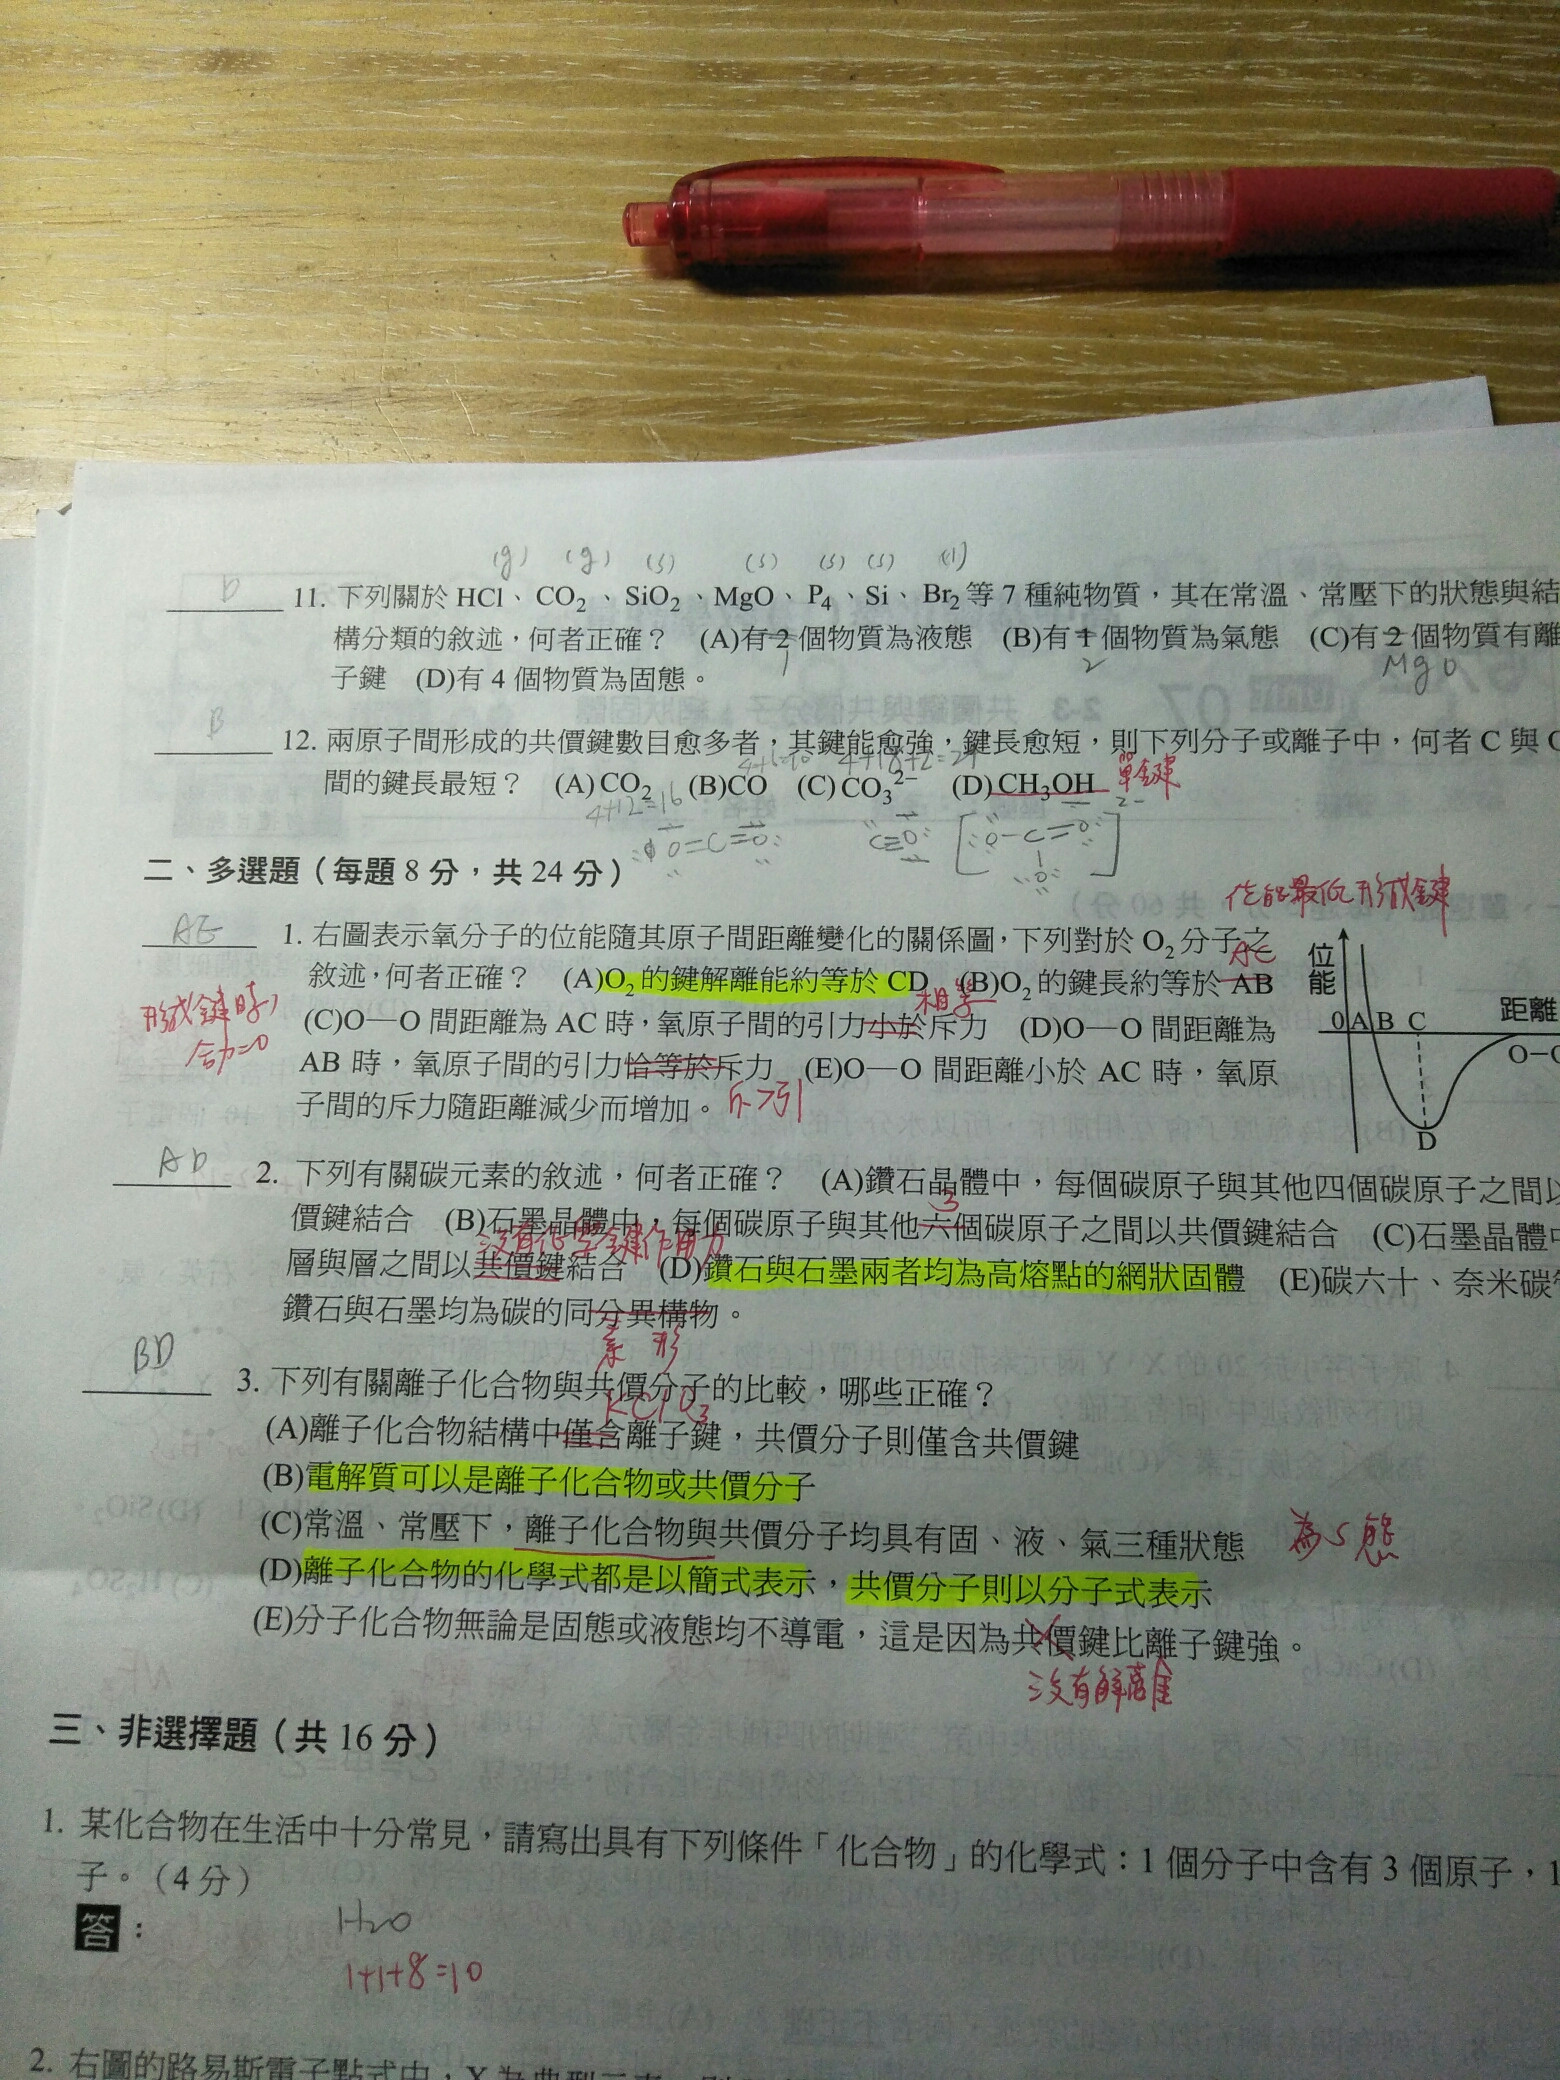 (g) (g) (s) (s) (s) (s) (l)
D 11. 下列關於 HCl、CO₂、SiO₂、MgO、P₄、Si、Br₂等 7 種純物質，其在常溫、常壓下的狀態與結
構分類的敘述，何者正確？ (A)有2個物質為液態 (B)有1個物質為氣態 (C)有2個物質有離
1 2 MgO
子鍵 (D)有 4 個物質為固態。
B 12. 兩原子間形成的共價鍵數目愈多者，其鍵能愈強，鍵長愈短，則下列分子或離子中，何者 C 與 O
4+6=10 4+18+2=24
間的鍵長最短？ (A)CO₂ (B)CO (C)CO₃²⁻ (D)CH₃OH 單鍵
4+12=16
O=C=O C≡O [O-C=O O]2-
二、多選題（每題 8 分，共 24 分）
位能最低形成鍵
AE 1. 右圖表示氧分子的位能隨其原子間距離變化的關係圖，下列對於 O₂分子之
AC
敘述，何者正確？ (A)O₂的鍵解離能約等於 CD (B)O₂的鍵長約等於 AB
相等
(C)O—O 間距離為 AC 時，氧原子間的引力小於斥力 (D)O—O 間距離為
AB 時，氧原子間的引力恰等於斥力 (E)O—O 間距離小於 AC 時，氧原
子間的斥力隨距離減少而增加。 斥>引
形成鍵時，
合力=0
位能
0 A B C 距離
O−O
D
AD 2. 下列有關碳元素的敘述，何者正確？ (A)鑽石晶體中，每個碳原子與其他四個碳原子之間以
3
價鍵結合 (B)石墨晶體中，每個碳原子與其他六個碳原子之間以共價鍵結合 (C)石墨晶體中
沒有化學鍵作用力
層與層之間以共價鍵結合 (D)鑽石與石墨兩者均為高熔點的網狀固體 (E)碳六十、奈米碳管
鑽石與石墨均為碳的同分異構物。
素 形
BD 3. 下列有關離子化合物與共價分子的比較，哪些正確？
KClO₃
(A)離子化合物結構中僅含離子鍵，共價分子則僅含共價鍵
(B)電解質可以是離子化合物或共價分子
(C)常溫、常壓下，離子化合物與共價分子均具有固、液、氣三種狀態 為s態
(D)離子化合物的化學式都是以簡式表示，共價分子則以分子式表示
(E)分子化合物無論是固態或液態均不導電，這是因為共價鍵比離子鍵強。
沒有解離
三、非選擇題（共 16 分）
1. 某化合物在生活中十分常見，請寫出具有下列條件「化合物」的化學式：1 個分子中含有 3 個原子，1
子。（4 分）
答： H₂O
1+1+8=10
2. 右圖的路易斯電子點式中，X 為典型元素，則